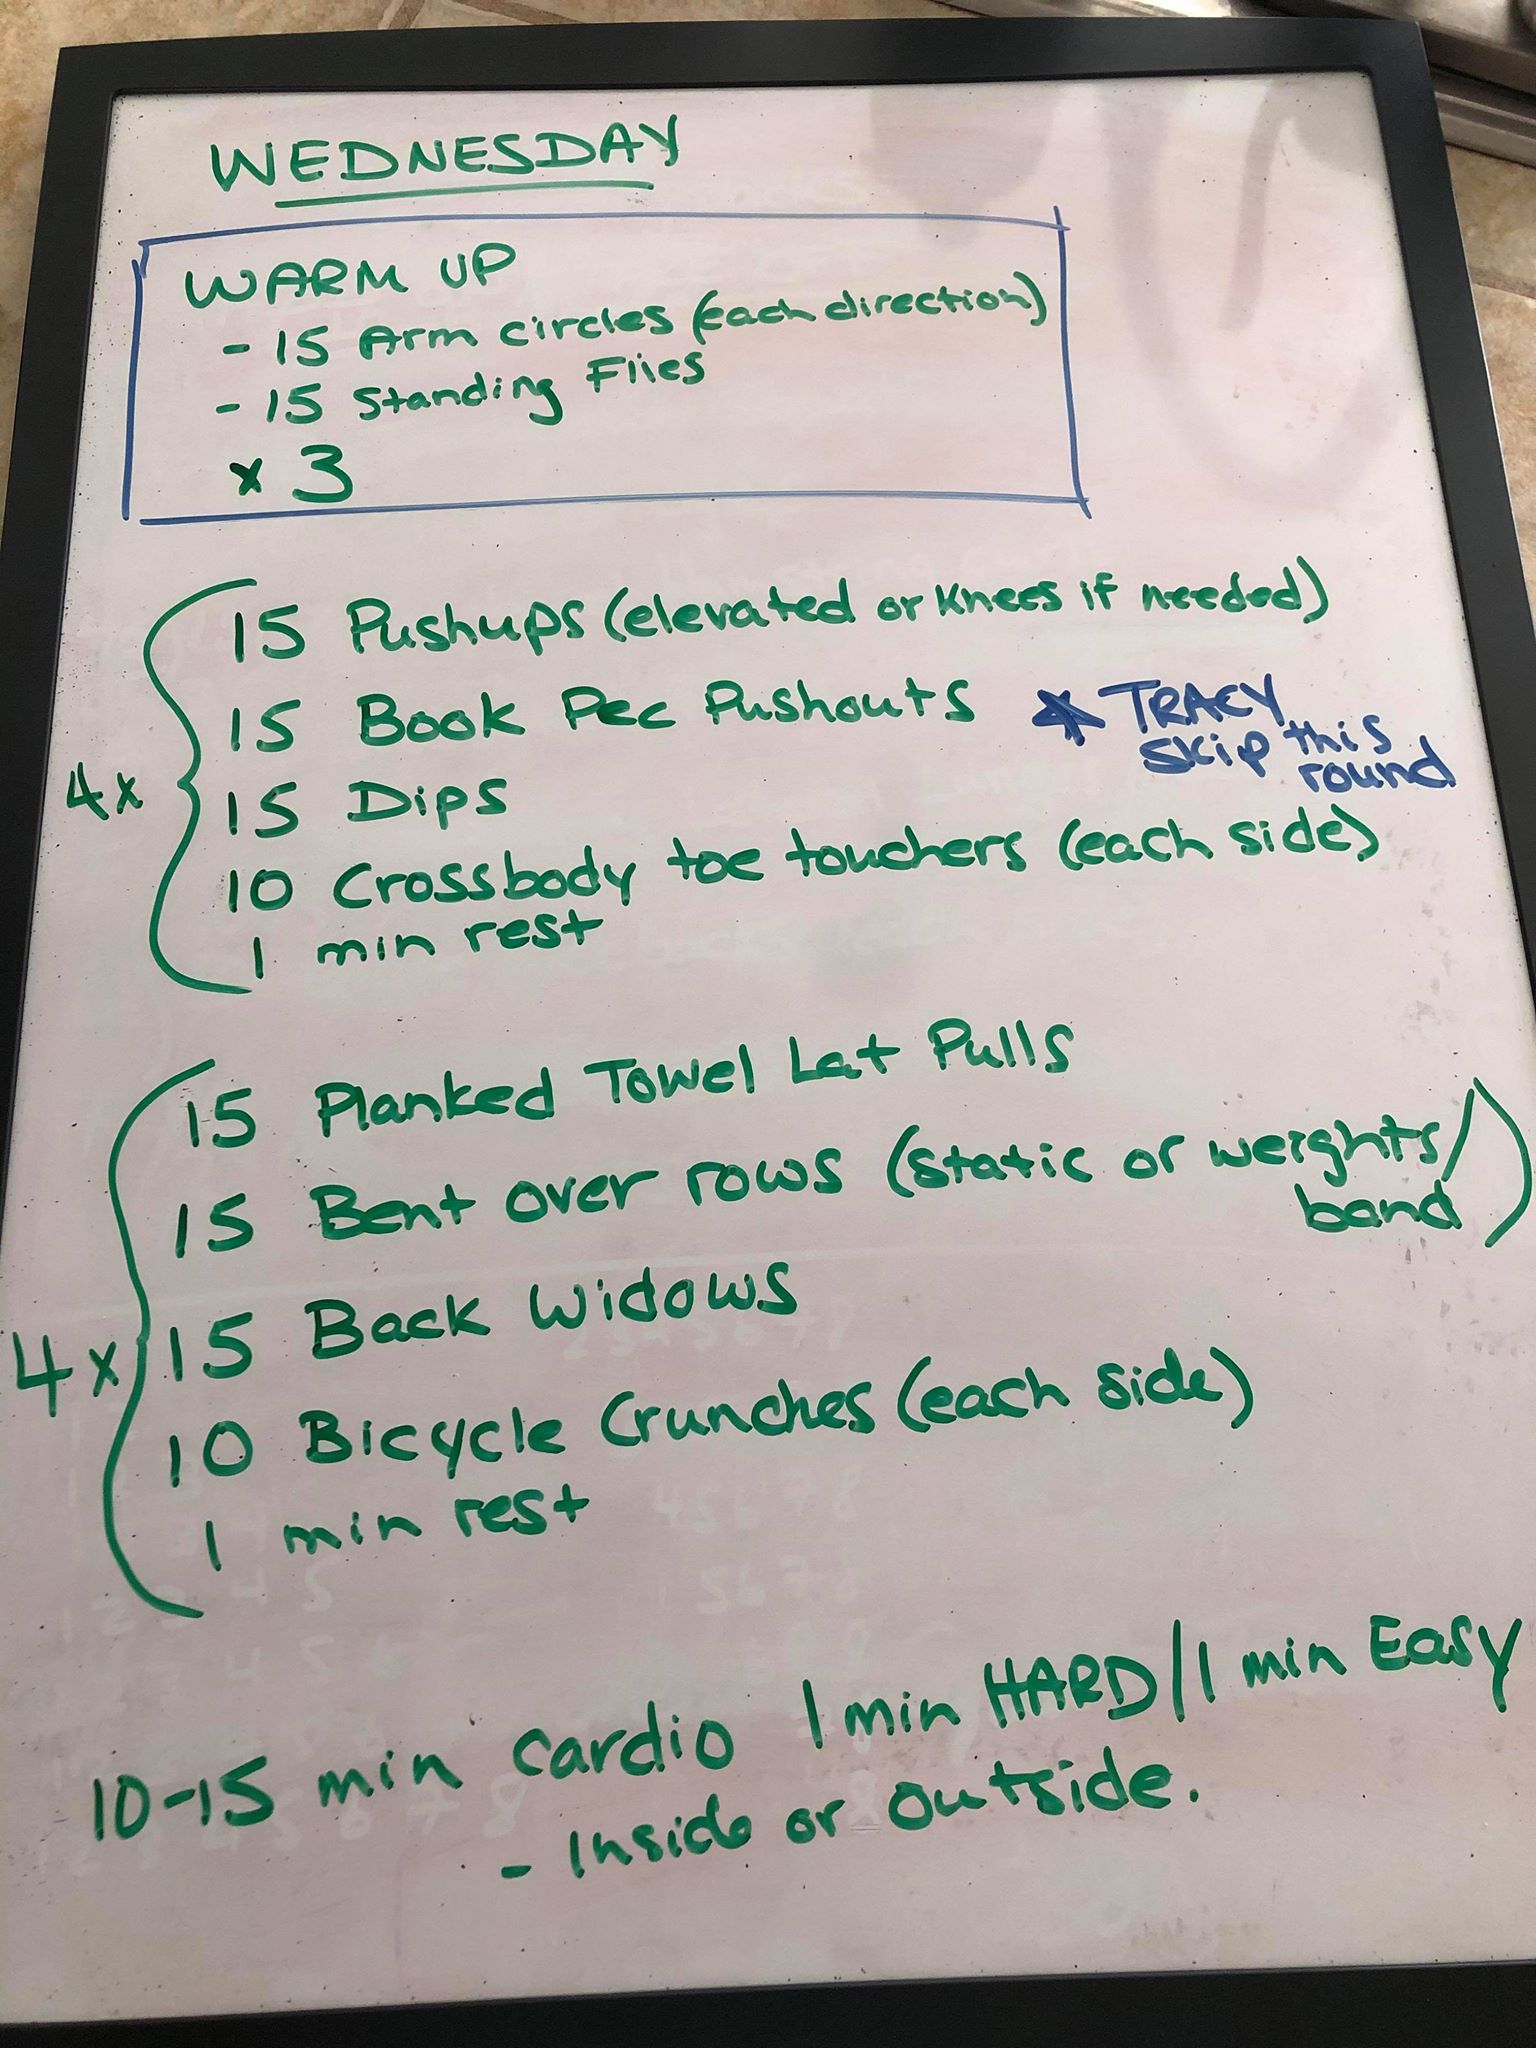 WEDNESDAY
WARM UP
- 15 Arm circles (each direction)
- 15 Standing Flies
x 3
4x
15 Pushups (elevated or knees if needed)
15 Book Pec Pushouts
* TRACY
skip this
round
15 Dips
10 Crossbody toe touchers (each side)
1 min rest
4x
15 Planked Towel Lat Pulls
15 Bent over rows (static or weights/
band)
15 Back Widows
10 Bicycle Crunches (each side)
1 min rest
10-15 min cardio 1 min HARD/1 min Easy
- Inside or outside.